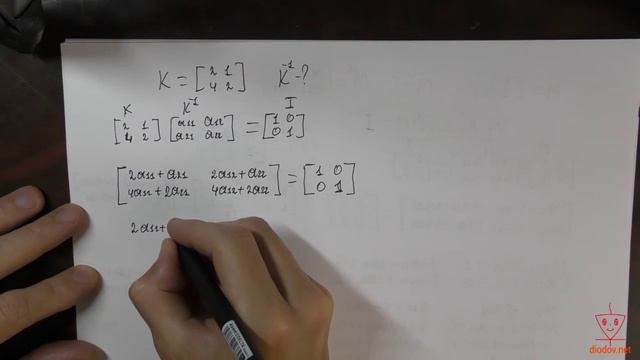 K = [2 1 4 2] K⁻¹ - ?
K K⁻¹ I
[2 1 4 2] [a₁₁ a₁₂ a₂₁ a₂₂] = [1 0 0 1]
[2a₁₁ + a₂₁ 2a₁₂ + a₂₂ 4a₁₁ + 2a₂₁ 4a₁₂ + 2a₂₂] = [1 0 0 1]
2a₁₁ +
diodov.net